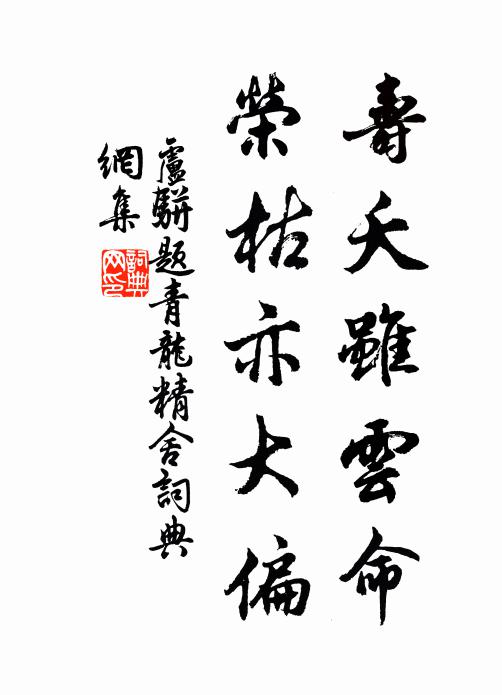 壽夭雖雲命
榮枯亦大偏
盧駢題青龍精舍詞典
網集
詞典網印